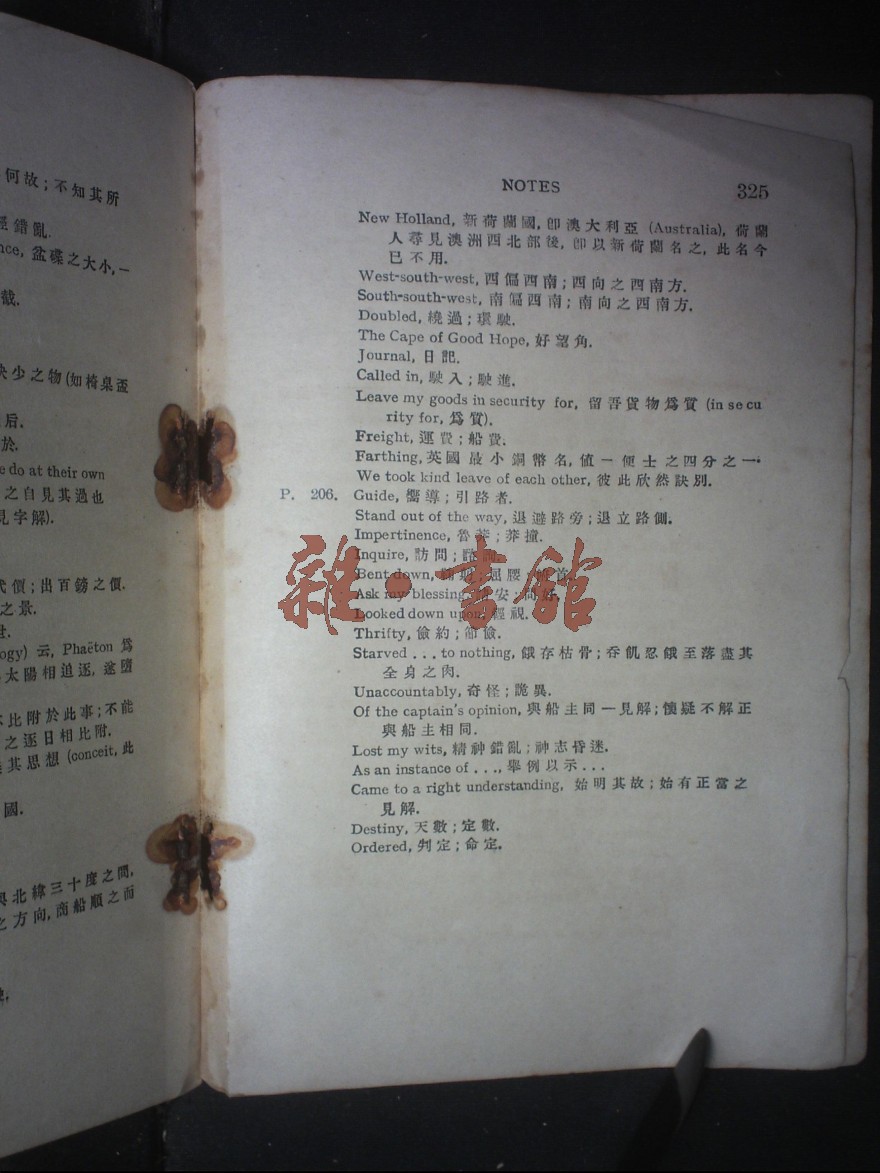 何故；不知其所
錯亂.
nce, 盆碟之大小,一
截.
缺少之物(如椅桌盃
后.
於.
e do at their own
之自見其過也
見字解).
代價；出百鎊之價.
之景.
ogy) 云, Phaëton 爲
太陽相追逐, 遂墮
比附於此事；不能
之逐日相比附.
其思想 (conceit, 此
國.
與北緯三十度之間,
之方向,商船順之而
NOTES 325
New Holland, 新荷蘭國, 卽澳大利亞 (Australia), 荷蘭
人尋見澳洲西北部後, 卽以新荷蘭名之, 此名今
已不用.
West-south-west, 西偪西南；西向之西南方.
South-south-west, 南偪西南；南向之西南方.
Doubled, 繞過；環駛.
The Cape of Good Hope, 好望角.
Journal, 日記.
Called in, 駛入；駛進.
Leave my goods in security for, 留吾貨物爲質 (in secu
rity for, 爲質).
Freight, 運費；船費.
Farthing, 英國最小銅幣名, 値一便士之四分之一.
We took kind leave of each other, 彼此欣然訣別.
P. 206. Guide, 嚮導；引路者.
Stand out of the way, 退避路旁；退立路側.
Impertinence, 魯莽；莽撞.
Inquire, 訪問；
Bent down, 屈腰；
Ask my blessing, 安；問好.
Looked down upon, 輕視.
Thrifty, 儉約；節儉.
Starved . . . to nothing, 餓存枯骨；吞飢忍餓至落盡其
全身之肉.
Unaccountably, 奇怪；詭異.
Of the captain's opinion, 與船主同一見解；懷疑不解正
與船主相同.
Lost my wits, 精神錯亂；神志昏迷.
As an instance of . . ., 舉例以示 . . .
Came to a right understanding, 始明其故；始有正當之
見解.
Destiny, 天數；定數.
Ordered, 判定；命定.
雜·書館